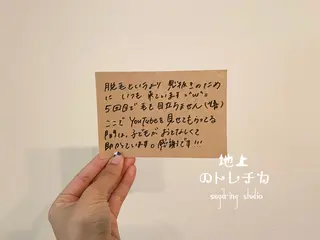 脱毛というより 感謝!!のために
いつも来ています ^w^
5回目で毛も目立ちません(喜)
ここでYouTubeを見せてもらってる
時は、子どもがおとなしくて
助かっています。感謝です!!!
地上
のトレチカ
sugaring studio